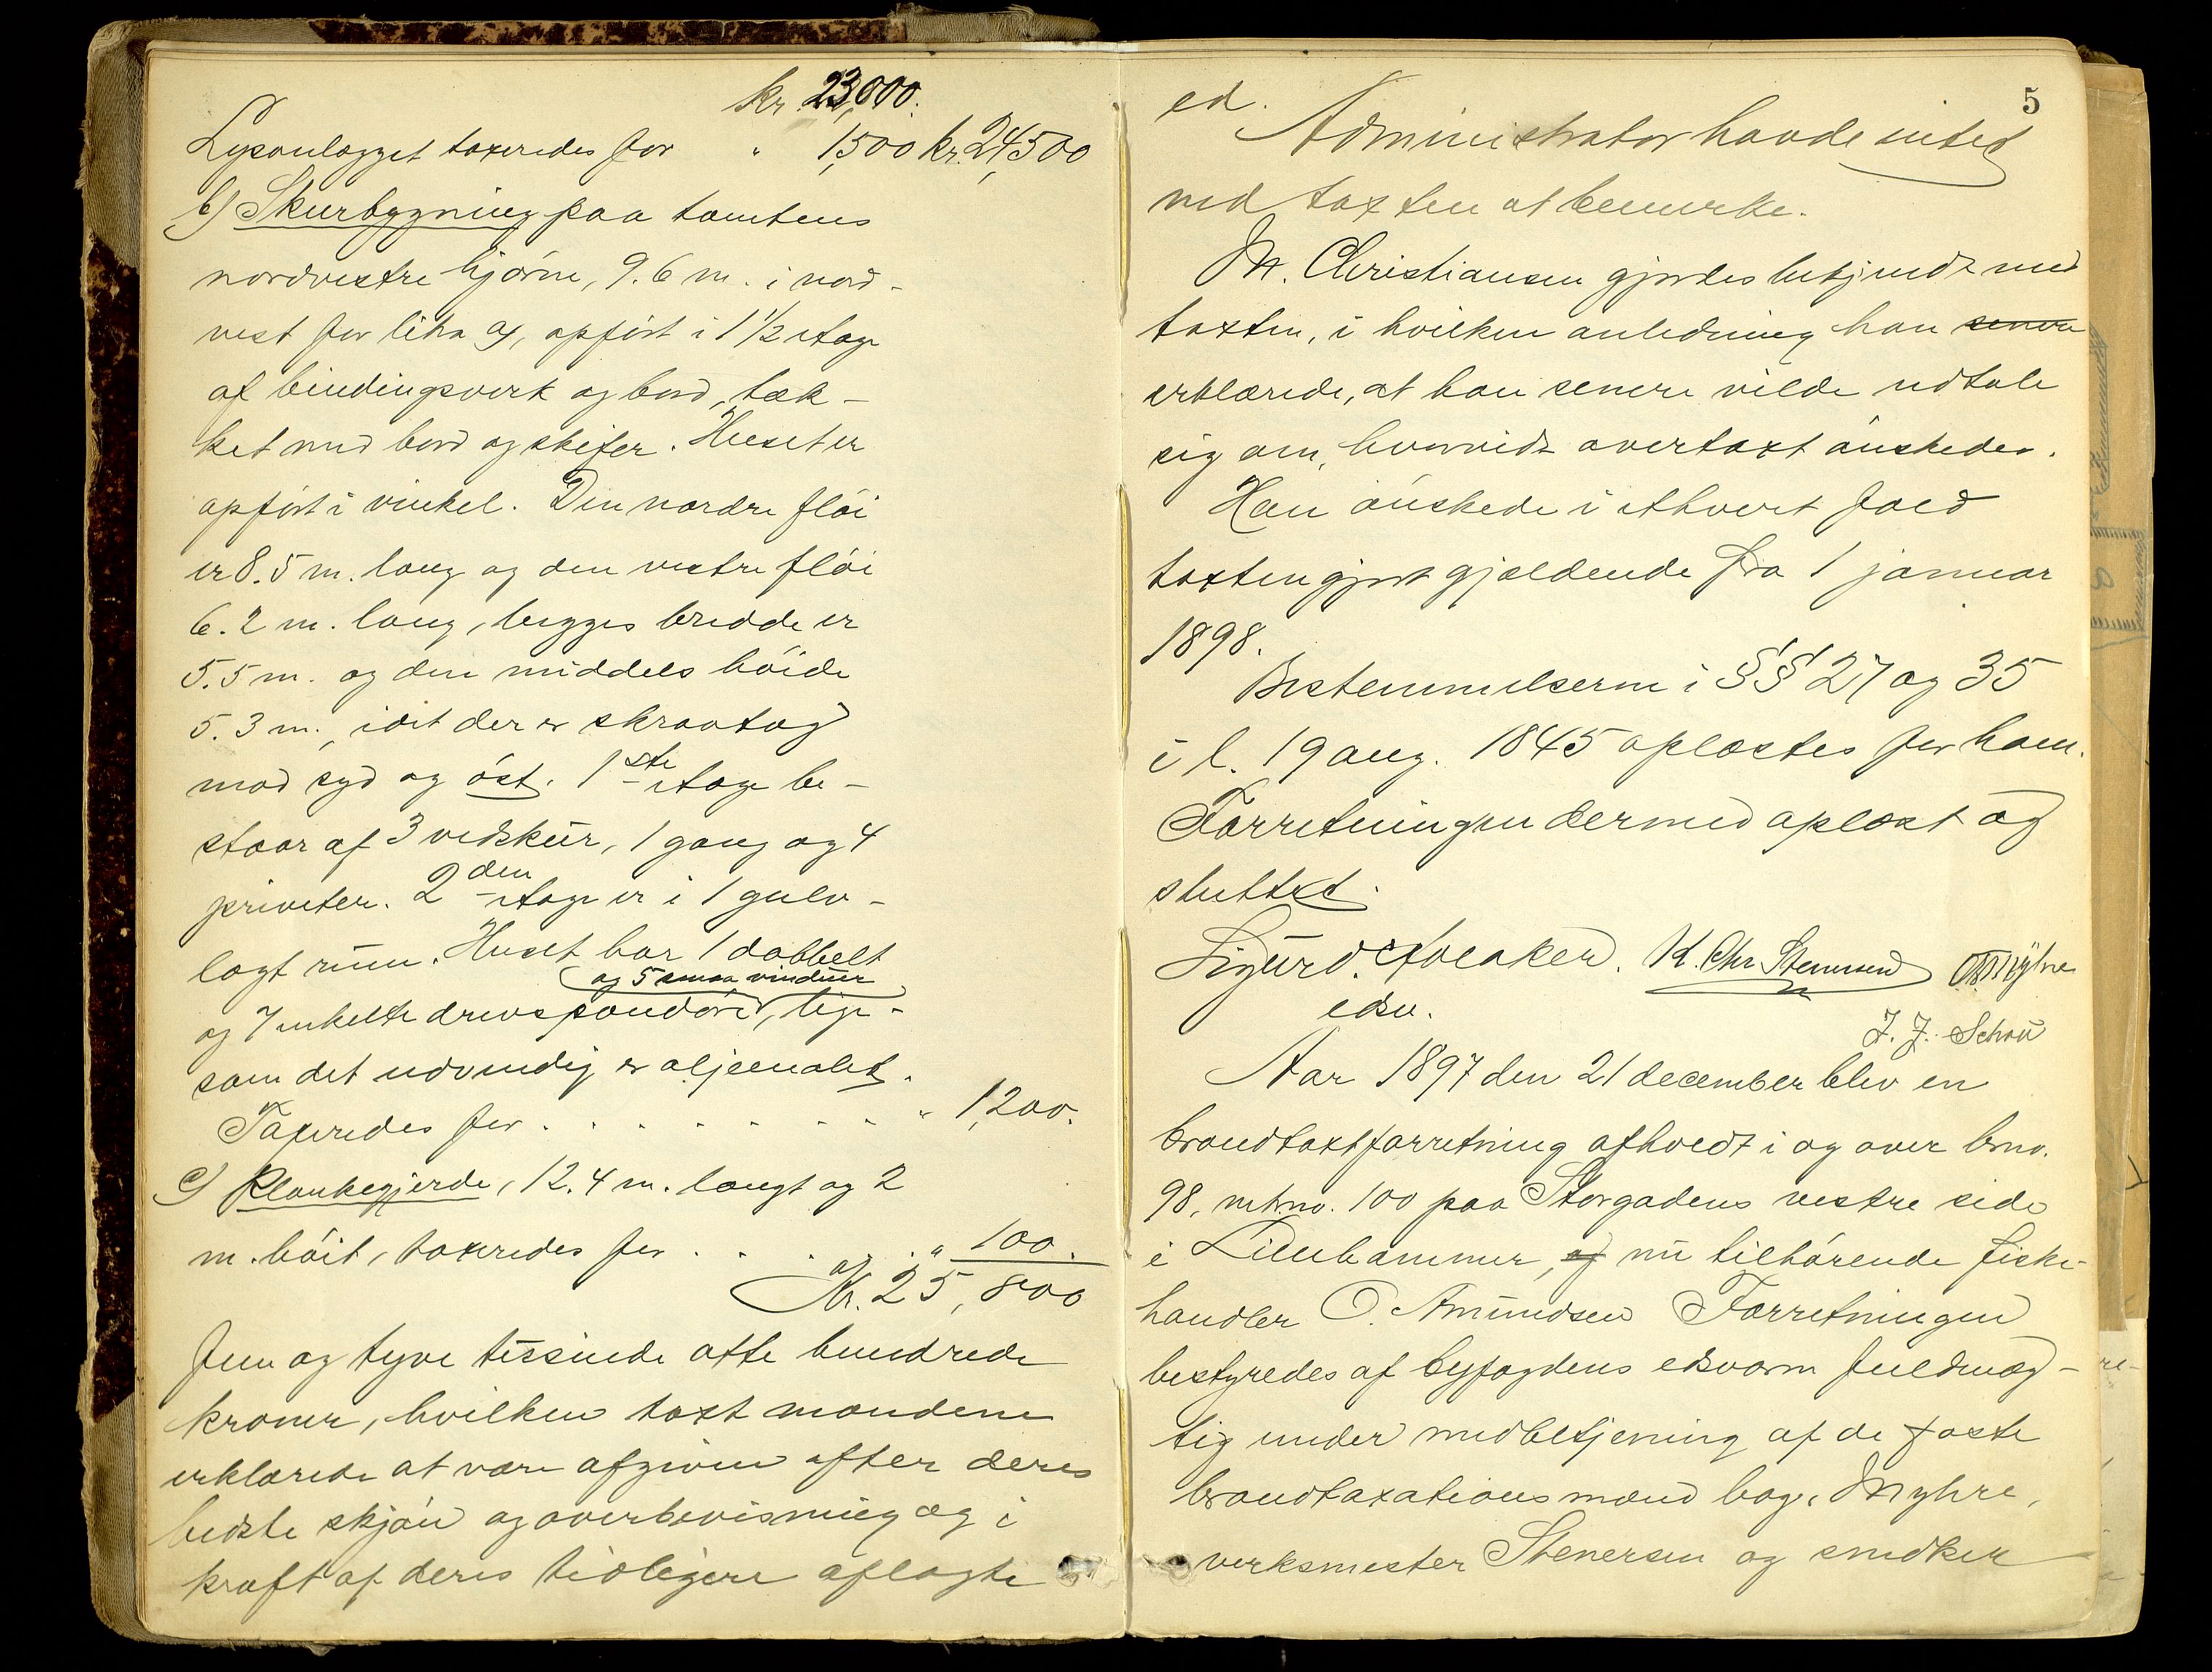 kr. 23,000.
Lysanlægget taxeredes for " 1,500 kr. 24,500
b) Skurbygning paa tomtens
nordvestre hjørne, 9.6 m. i nord-
vest for litra a, opført i 1 1/2 etage
af bindingsverk og bord, tæk-
ket med bord og skifer. Huset er
opført i vinkel. Den nordre fløi
er 8.5 m. lang og den vestre fløi
6.2 m. lang, begges bredde er
5.5 m. og den middels høide
5.3 m., idet der er skraatag
mod syd og øst. 1ste etage be-
staar af 3 vedskur, 1 gang og 4
priveter. 2den etage er i 1 gulv-
lagt rum. Huset har 1 dobbelt
og 5 smaa vinduer
og 7 enkelte drevspondører, lige-
som det udvendig er oljemalet.
Taxeredes for . . . . . . . . " 1,200.
c) Plankegjerde, 12.4 m. langt og 2
m. høit, taxeredes for . . . . " 100.
Kr. 25,800
fem og tyve tusinde otte hundrede
kroner, hvilken taxt mændene
erklærede at være afgiven efter deres
bedste skjøn og overbevisning og i
kraft af deres tidligere aflagte
5
ed.
Administrator havde intet
ved taxten at bemerke.
M. Christiansen gjordes bekjendt med
taxten, i hvilken anledning han senere
erklærede, at han senere vilde udtale
sig om, hvorvidt overtaxt ønskedes.
Han ønskede i ethvert fald
taxten gjort gjældende fra 1 januar
1898.
Bestemmelserne i §§ 27 og 35
i l. 19 aug. 1845 oplæstes for ham.
Forretningen dermed oplæst og
sluttet.
Sigurd. K. Chr. Stenersen Myhre
edsv.
J. J. Schou
Aar 1897 den 21 december blev en
brandtaxtforretning afholdt i og over brno.
98, mtrno. 100 paa Storgadens vestre side
i Lillehammer, af nu tilhørende fiske-
handler O. Amundsen Forretningen
bestyredes af byfogdens edsvorne fuldmæg-
tig under medbetjening af de faste
brandtaxationsmænd bag. Myhre,
verksmester Stenersen og snedker